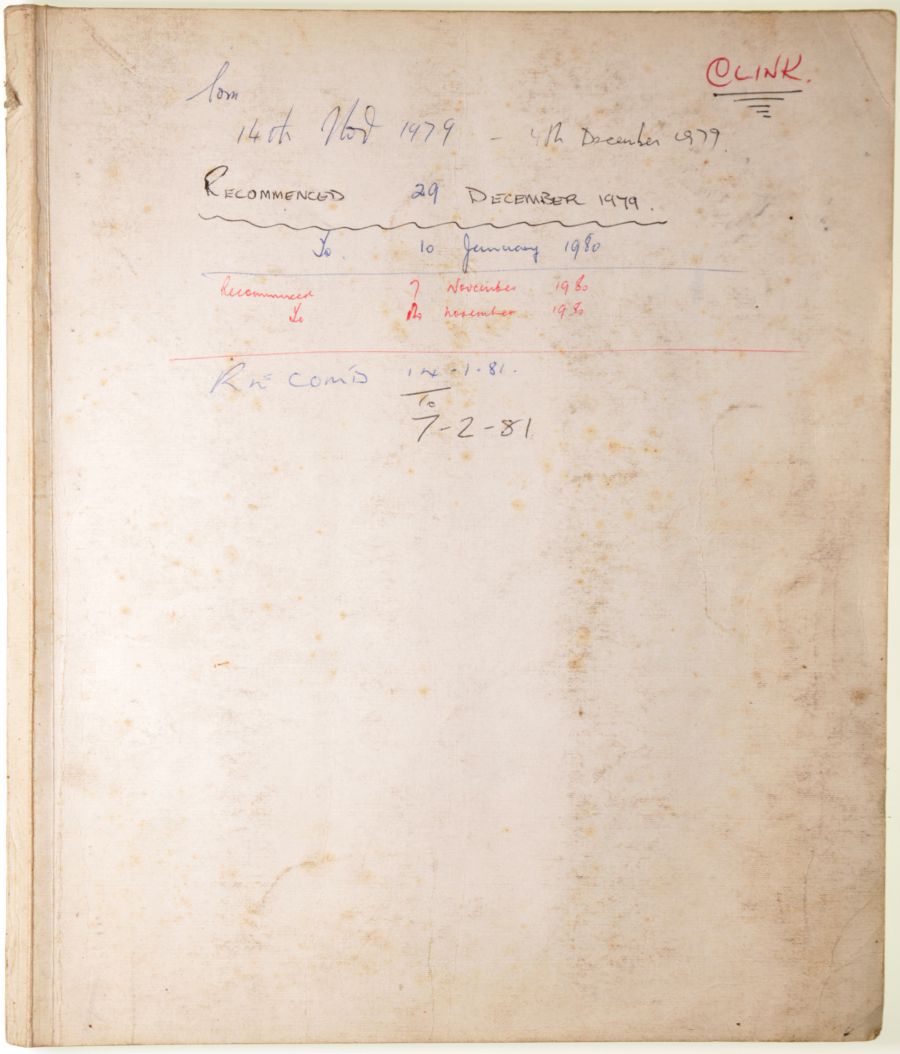 CLINK.
from
14th Nov 1979 - 4th December 1979.
RECOMMENCED 29 DECEMBER 1979.
To. 10 January 1980
Recommenced 7 November 1980
To november 1980
RE COM'D 14-1-81.
To
7-2-81